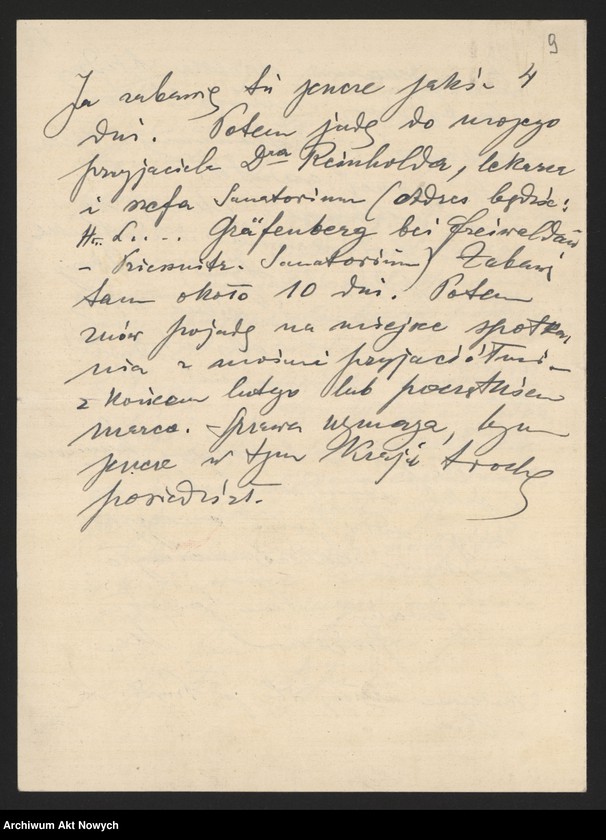 9
Ja zabawię tu jeszcze jakś 4
dni. Potem jadę do mojego
przyjaciela Dra Reinholda, lekarza
i szefa Sanatorium (adres będzie:
H. L. .. Gräfenberg bei Freiwaldau
- Priessnitz. Sanatorium) Zabawię
tam około 10 dni. Potem
znów pojadę na miejsce spotka
nia z moimi przyjaciółmi -
z końcem lutego lub początkiem
marca. Sprawa wymaga, bym
jeszcze w tym Kraju trochę
posiedział.
Archiwum Akt Nowych